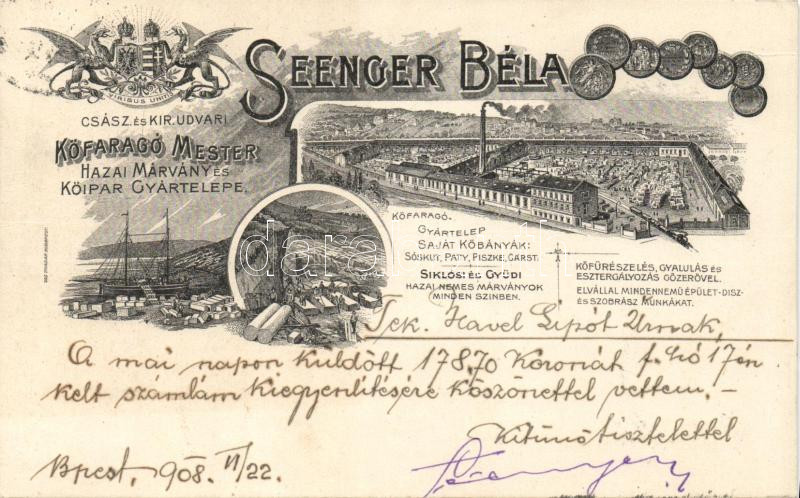 SEENGER BÉLA
VIRIBUS UNITIS
CSÁSZ. ÉS KIR. UDVARI
KŐFARAGÓ MESTER
HAZAI MÁRVÁNY ÉS
KŐIPAR GYÁRTELEPE.
KŐFARAGÓ.
GYÁRTELEP
SAJÁT KŐBÁNYÁK:
SÓSKUT, PÁTY, PISZKE, CARST.
SIKLÓSI ÉS GYÜDI
HAZAI NEMES MÁRVÁNYOK
MINDEN SZINBEN.
KŐFÜRÉSZELÉS, GYALULÁS ÉS
ESZTERGÁLYOZÁS GŐZERŐVEL.
ELVÁLLAL MINDENNEMŰ ÉPÜLET-DISZ-
ÉS SZOBRÁSZ MUNKÁKAT.
Tek. Havel Lipót Urnak,
A mai napon küldött 178,70 Koronát f. hó 17én
kelt számlám kiegyenlitésére köszönettel vettem.-
Kitünő tisztelettel
Bpest, 908. VI/22.
darabanth